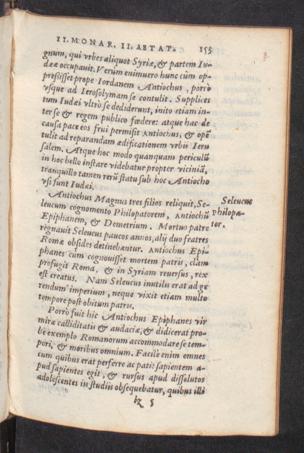 II. MONAR. II. AETAT. 155
gnum, qui vrbes aliquot Syriæ, & partem Iu-
dææ occupauit. Verum enimuero hunc cùm op-
pressisset prope Iordanem Antiochus, porrò
vsque ad Ierosolymam se contulit. Supplices
tum Iudæi vltrò se dediderunt, inito etiam in-
ter se & regem publico fœdere: atque hac de
causa pace eos frui permisit Antiochus, & opē
tulit ad reparandam ædificationem vrbis Ieru
salem. Atque hoc modo quanquam periculū
in hoc bello instare videbatur propter viciniā,
tranquillo tamen rerū statu sub hoc Antiocho
vsi sunt Iudæi.
Antiochus Magnus tres filios reliquit, Se-
leucum cognomento Philopatorem, Antiochū
Epiphanem, & Demetrium. Mortuo patre
regnauit Seleucus paucos annos, alij duo fratres
Romæ obsides detinebantur. Antiochus Epi-
phanes cùm cognouisset mortem patris, clam
profugit Roma, & in Syriam reuersus, rex
est creatus. Nam Seleucus inutilis erat ad ge-
rendum imperium, neque vixit etiam multo
tempore post obitum patris.
Seleucus
Philopa-
tor.
Porrò fuit hic Antiochus Epiphanes vir
miræ calliditatis & audaciæ, & didicerat pro-
be exemplo Romanorum accommodare se tem-
pori, & moribus omnium. Facilè enim omnes
cum quibus erat perferre ac pati: sapientem a-
pud sapientes egit, & rursus apud dissolutos
adolescentes in studiis obsequebatur, quibus illi
k 5